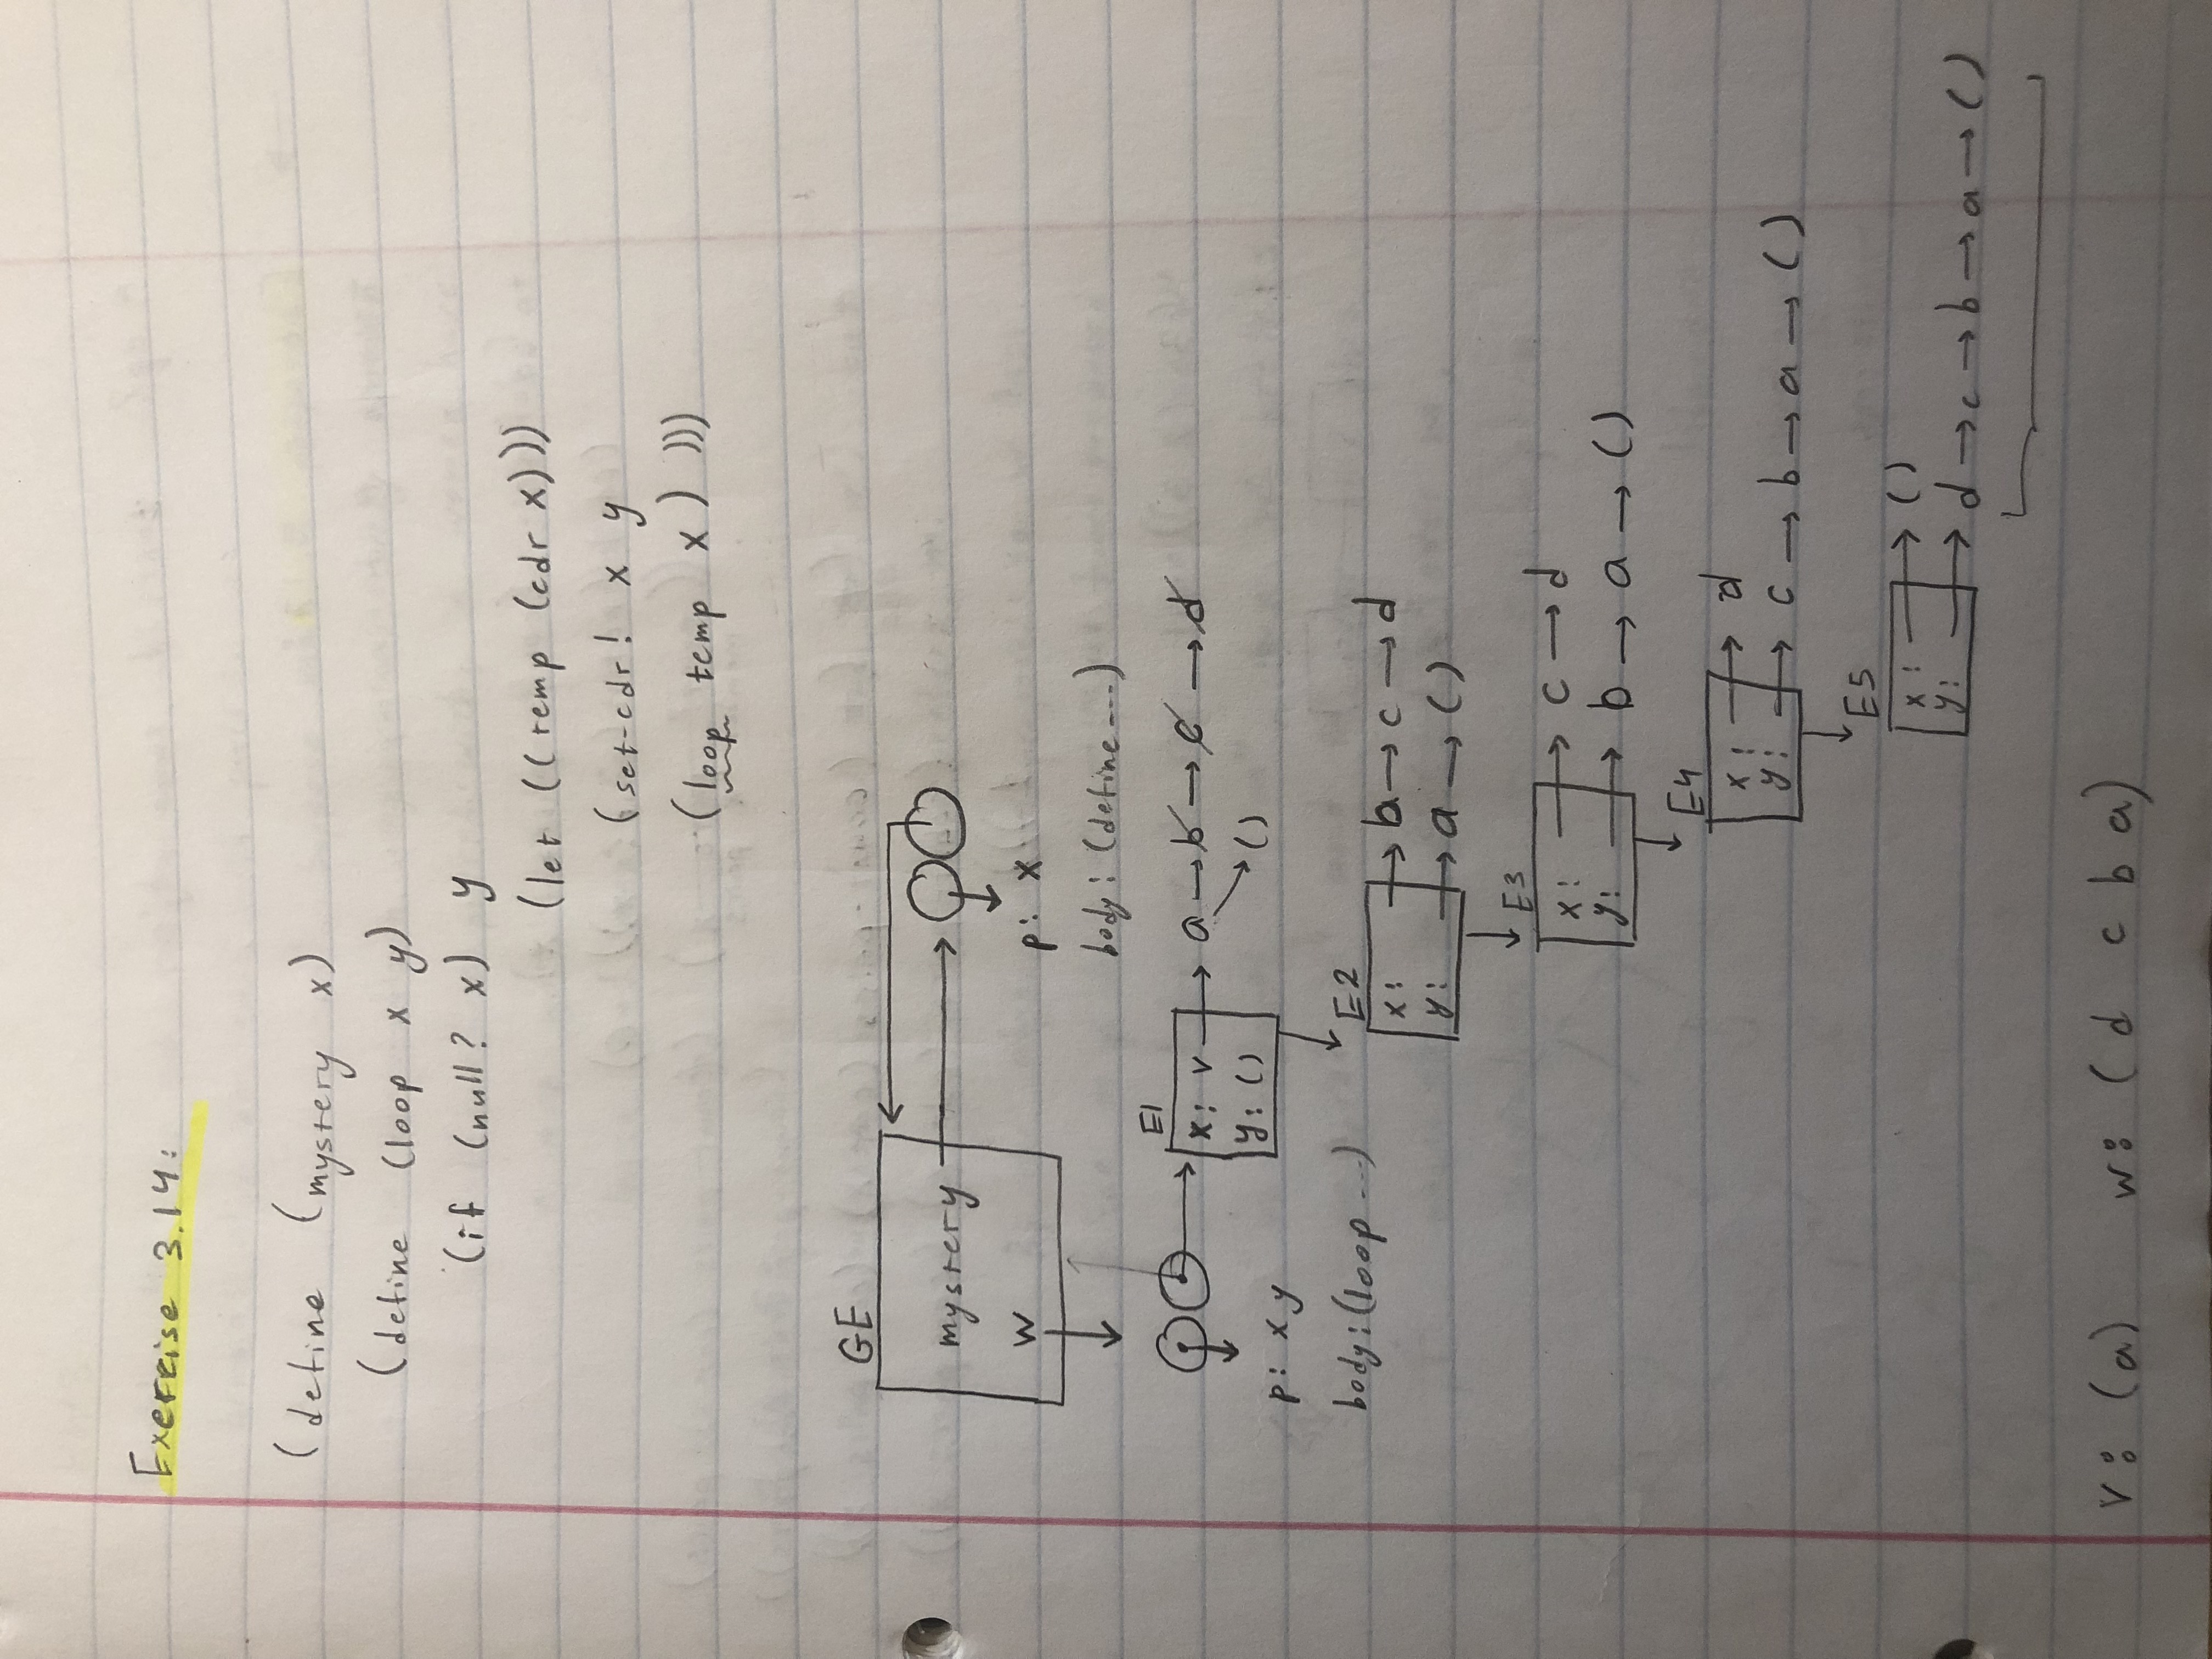 Exercise 3.14:
(define (mystery x)
(define (loop x y)
(if (null? x) y
(let ((temp (cdr x)))
(set-cdr! x y
(loop temp x) )))
GE
mystery
w
p: x
body: (define ---)
E1
x: v → a → b → c → d
y: () → ()
p: x y
body: (loop ---)
E2
x: → b → c → d
y: → a → ()
E3
x: → c → d
y: → b → a → ()
E4
x: → d
y: → c → b → a → ()
E5
x: → ()
y: → d → c → b → a → ()
v: (a) w: (d c b a)